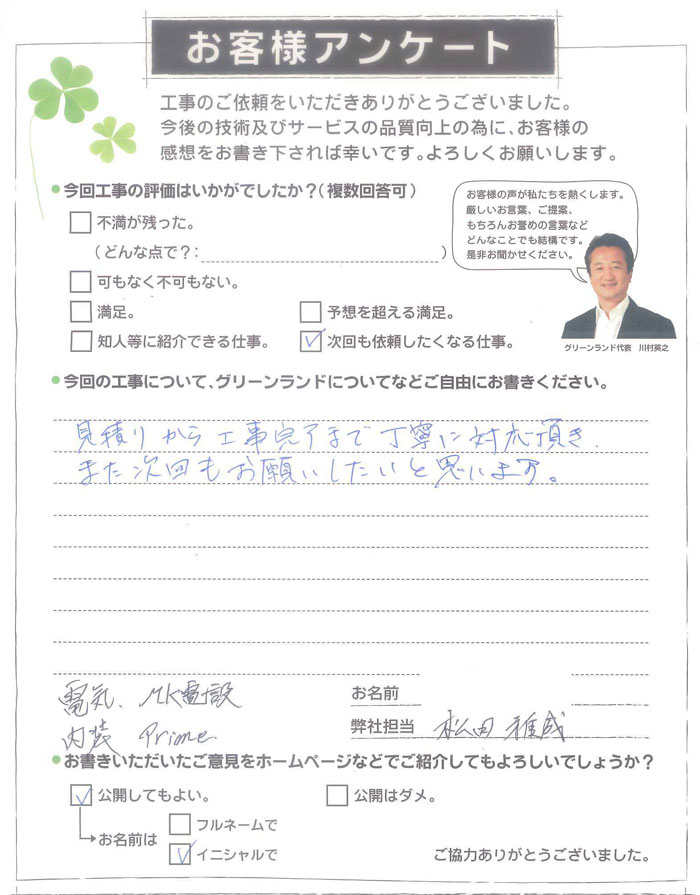 お客様アンケート
工事のご依頼をいただきありがとうございました。
今後の技術及びサービスの品質向上の為に、お客様の
感想をお書き下されば幸いです。よろしくお願いします。
今回工事の評価はいかがでしたか?(複数回答可)
不満が残った。
(どんな点で?: )
可もなく不可もない。
満足。 予想を超える満足。
知人等に紹介できる仕事。 次回も依頼したくなる仕事。
お客様の声が私たちを熱くします。
厳しいお言葉、ご提案、
もちろんお誉めの言葉など
どんなことでも結構です。
是非お聞かせください。
グリーンランド代表 川村英之
今回の工事について、グリーンランドについてなどご自由にお書きください。
見積りから工事完了まで丁寧に対応頂き、
また次回もお願いしたいと思います。
電気、MK電設
内装 Prime
お名前
弊社担当 松田 雅成
お書きいただいたご意見をホームページなどでご紹介してもよろしいでしょうか?
公開してもよい。 公開はダメ。
お名前は
フルネームで
イニシャルで
ご協力ありがとうございました。